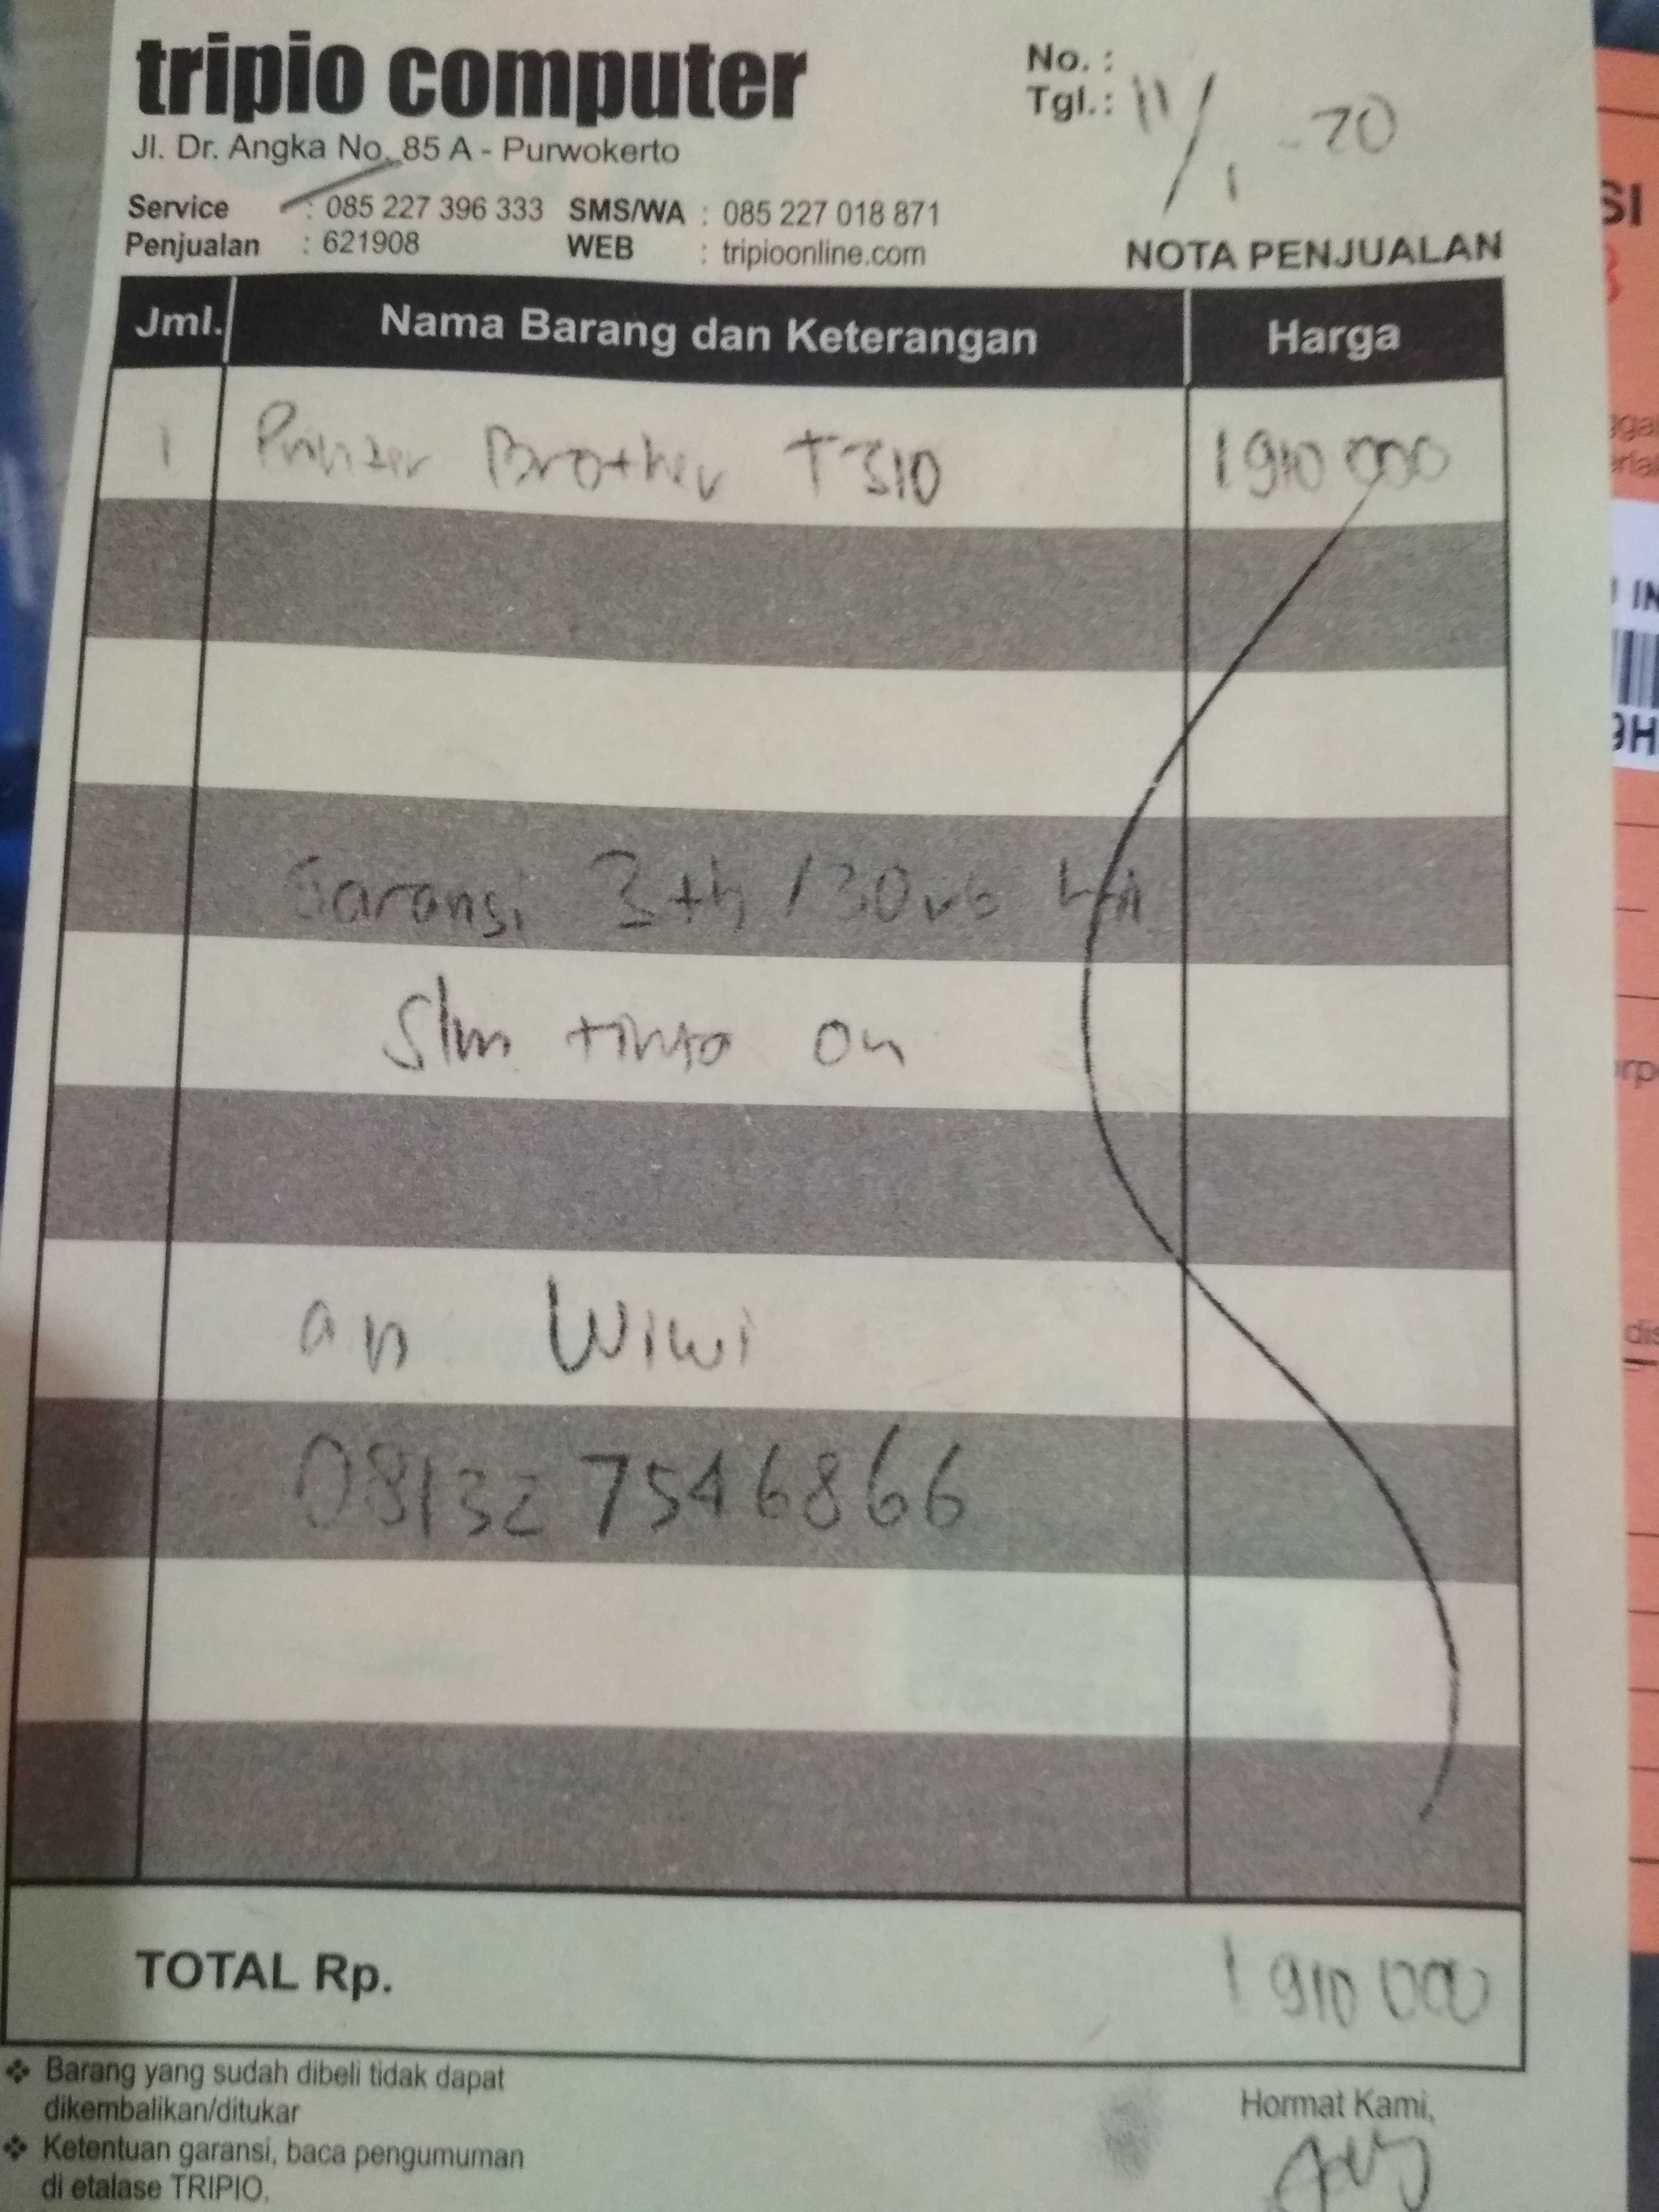 tripio computer
Jl. Dr. Angka No. 85 A - Purwokerto
No. :
Tgl.: 11/1 - 20
Service : 085 227 396 333 SMS/WA : 085 227 018 871
Penjualan : 621908 WEB : tripioonline.com
NOTA PENJUALAN
Jml. Nama Barang dan Keterangan Harga
1 Printer Brother T310 1910 000
Garansi 3 th / 30 rb
tinta on
an Wiwi
081327546866
TOTAL Rp. 1 910 000
❖ Barang yang sudah dibeli tidak dapat
dikembalikan/ditukar
❖ Ketentuan garansi, baca pengumuman
di etalase TRIPIO.
Hormat Kami,
SI
IN
9H